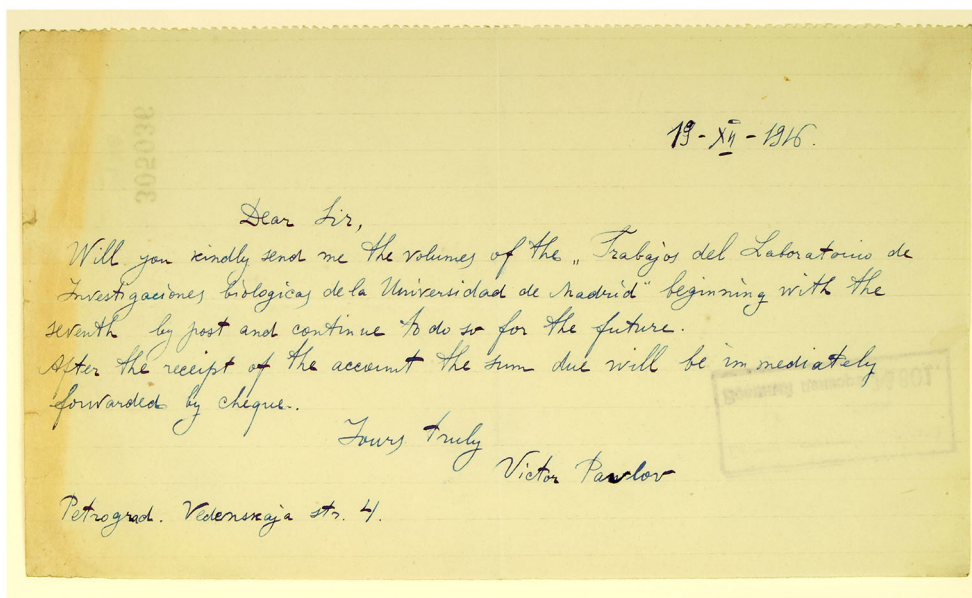 19-XII-1916.
Dear Sir,
Will you kindly send me the volumes of the „Trabajos del Laboratorio de
Investigaciones biologicas de la Universidad de Madrid" beginning with the
seventh by post and continue to do so for the future.
After the receipt of the account the sum due will be immediately
forwarded by cheque.
Yours truly
Victor Pavlov
Petrograd. Vedenskaja str. 4.
305036